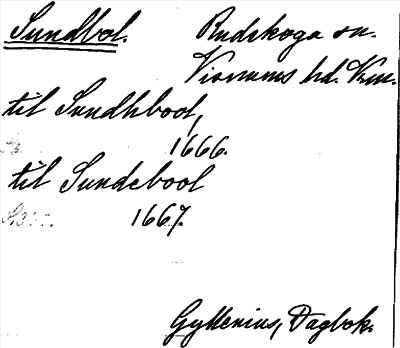 Sundbol. Rudskoga sn.
Visnums hd. Vrm.
til Sundhbool,
1666.
til Sundebool
1667.
Gyllenius, Dagbok.